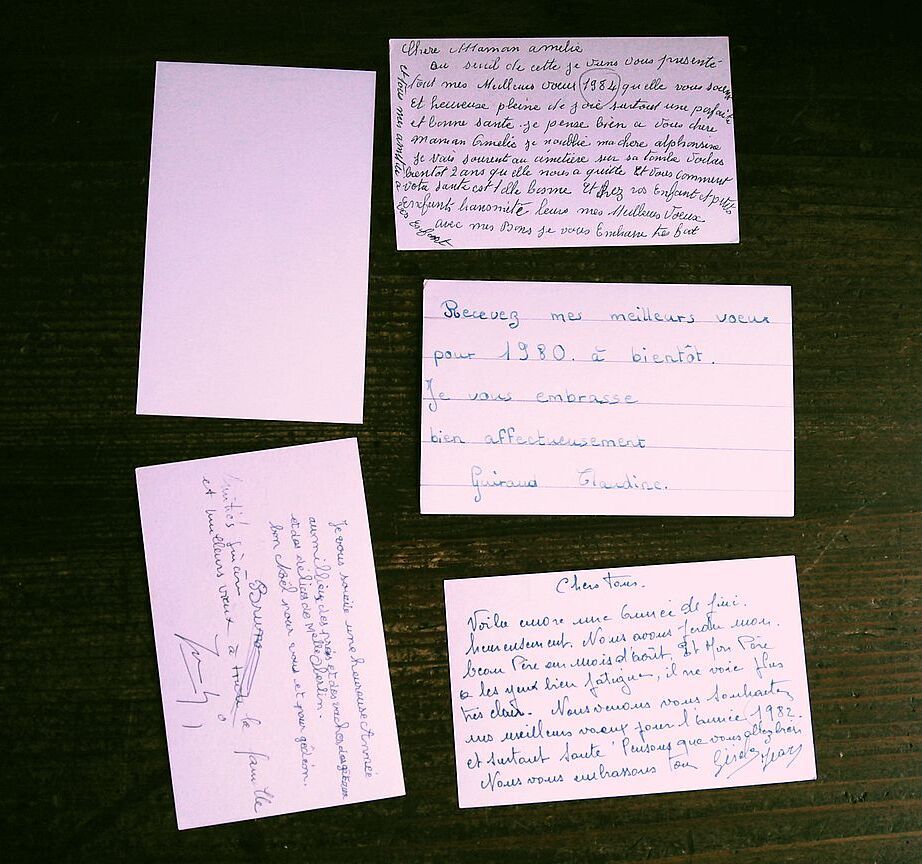 Chere Maman amelie
au seuil de cette je viens vous presente
tout mes Meilleurs voeux 1984 quelle vous soient
et heureuse pleine de joie surtout une parfaite
et bonne sante. je pense bien a vous chere
maman amelie je noublie ma chere alphonsine
je vais souvent au cimetière sur sa tombe voilas
bientot 2 ans qu elle nous a quitte Et vous Comment
vota sante est t'elle bonne Et chez vos Enfant et petits
enfants transmeté leurs mes Meilleurs Voeux
avec mes Bons je vous Embrasse tes
a les Enfant
Recevez mes meilleurs voeux
pour 1980. à bientôt.
Je vous embrasse
bien affectueusement
Guiraud Claudine.
Je vous souaite une heureuse Année
au millieu des prés et des vaches de
et des délices de Melle
bon Noël pour vous et pour gédéon.
Bruno
Amitiés
et meilleurs voeux à la famille
Chers Tous.
Voilà encore une Année de fini.
heureusement. Nous avons perdu mon
beau Père au mois d'août, Et Mon Père
a les yeux bien fatigué, il ne voie plus
très clair. Nous venons vous souhaiter
nos meilleurs voeux pour l'année 1982.
et surtout Santé! Pensons que vous allez bien
Nous vous embrassons tous